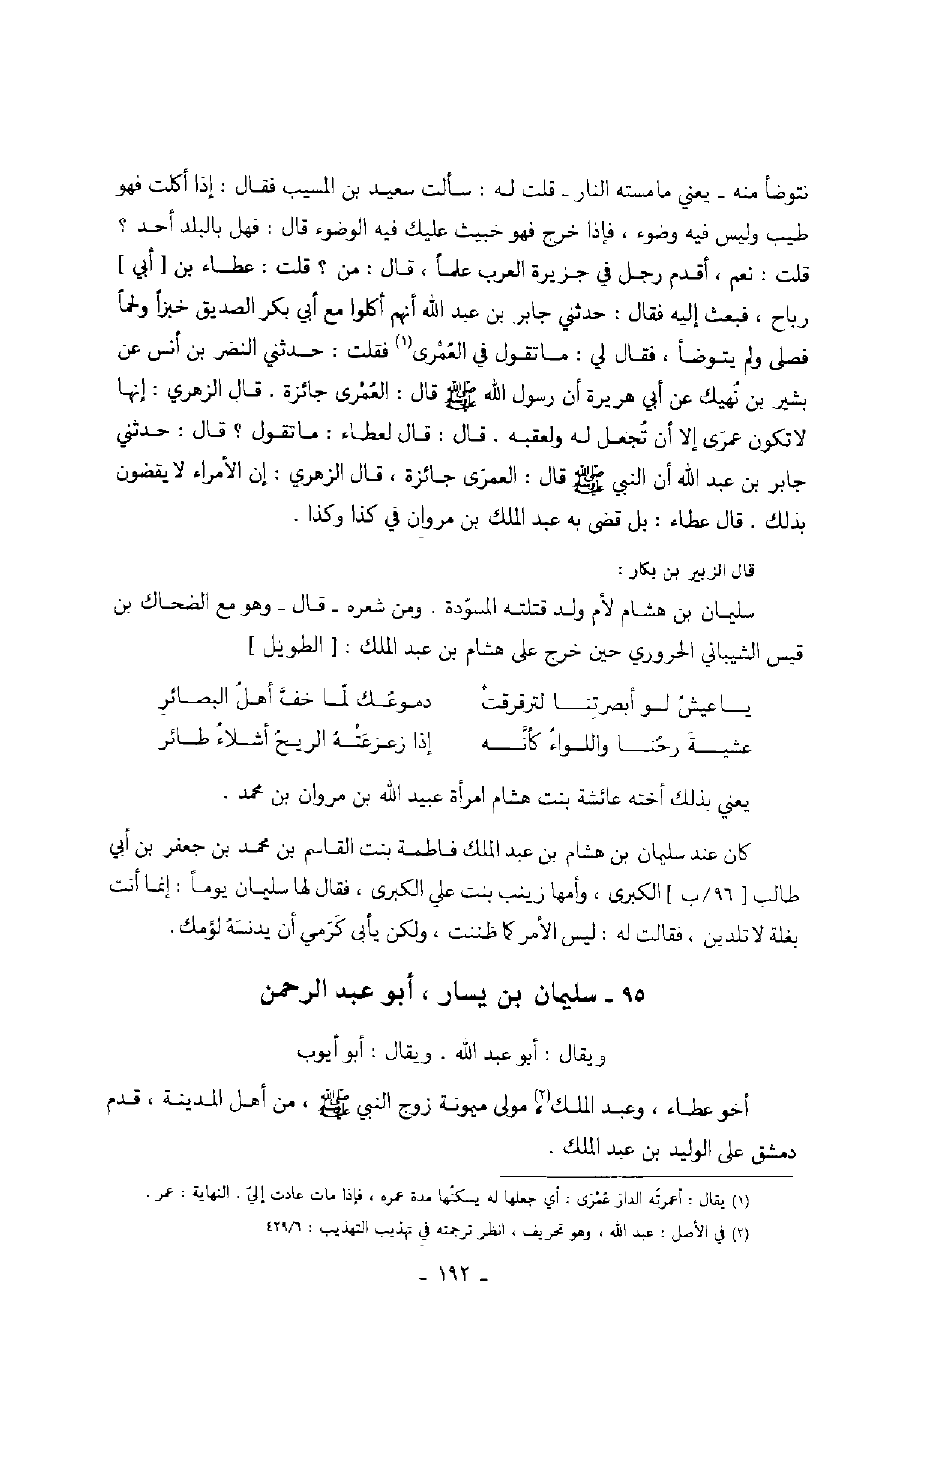 نتوضأ منه ـ يعني مامسته النار ـ قلت له : سألت سعيد بن المسيب فقال : إذا أكلت فهو
طيب وليس فيه وضوء ، فإذا خرج فهو خبيث عليك فيه الوضوء قال : فهل بالبلد أحد ؟
قلت : نعم ، أقدم رجل في جزيرة العرب علماً ، قال : من ؟ قلت : عطاء بن [ أبي ]
رباح ، فبعث إليه فقال : حدثني جابر بن عبد الله أنهم أكلوا مع أبي بكر الصديق خبزاً ولحماً
فصلى ولم يتوضأ ، فقال لي : ماتقول في العُمْرى(١) فقلت : حدثني النضر بن أنس عن
بشير بن نُهيك عن أبي هريرة أن رسول الله ﷺ قال : العُمْرى جائزة . قال الزهري : إنها
لاتكون عمرَى إلا أن تُجعل له ولعقبه . قال : قال لعطاء : ماتقول ؟ قال : حدثني
جابر بن عبد الله أن النبي ﷺ قال : العمرَى جائزة ، قال الزهري : إن الأمراء لايقضون
بذلك . قال عطاء : بل قضى به عبد الملك بن مروان في كذا وكذا .
قال الزبير بن بكار :
سليمان بن هشام لأم ولد قتلته المسوّدة . ومن شعره ـ قال ـ وهو مع الضحاك بن
قيس الشيباني الحروري حين خرج على هشام بن عبد الملك : [ الطويل ]
يـاعيشُ لـو أبصرتِنـا لترقرقتْ دموعُـك لمّـا خفَّ أهلُ البصـائرِ
عشيـةَ رحْنـا واللـواءُ كأنَّـه إذا زعـزعَتْـهُ الريـحُ أشـلاءُ طـائر
يعني بذلك أخته عائشة بنت هشام امرأة عبيد الله بن مروان بن محمد .
كان عند سليمان بن هشام بن عبد الملك فاطمة بنت القاسم بن محمد بن جعفر بن أبي
طالب [ ٩٦/ب ] الكبرى ، وأمها زينب بنت علي الكبرى ، فقال لها سليمان يوماً : إنما أنت
بغلة لاتلدين ، فقالت له : ليس الأمر كما ظننت ، ولكن يأبى كَرَمي أن يدنسَهُ لؤمك .
٩٥ ـ سليمان بن يسار ، أبو عبد الرحمن
ويقال : أبو عبد الله . ويقال : أبو أيوب
أخو عطاء ، وعبد الملك(٢) مولى ميمونة زوج النبي ﷺ ، من أهل المدينة ، قدم
دمشق على الوليد بن عبد الملك .
(١) يقال : أعمرتُه الدارَ عُمْرَى : أي جعلها له يسكنُها مدة عمره ، فإذا مات عادت إليّ . النهاية : عمر .
(٢) في الأصل : عبد الله ، وهو تحريف ، انظر ترجمته في تهذيب التهذيب : ٤٢٩/٦
ـ ١٩٢ ـ